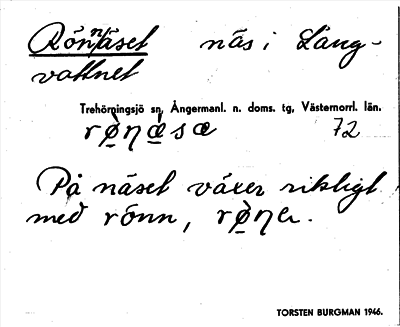 Rönnäset näs i Lång-
vattnet
Trehörningsjö sn, Ångermanl. n. doms. tg, Västernorrl. län.
72
På näset växer rikligt
med rönn,
TORSTEN BURGMAN 1946.